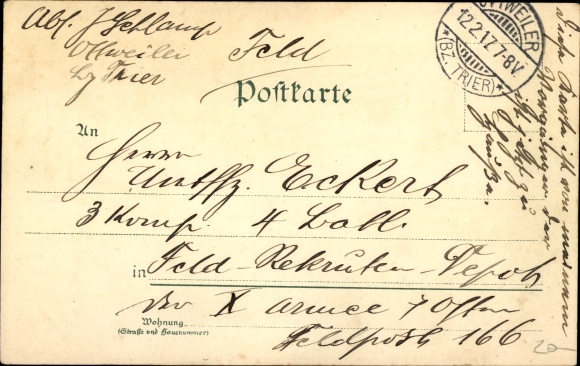 Abs. J Schlamp
Ottweiler
bz Trier
Feld
Postkarte
OTTWEILER
12.2.17. 7-8V
*(BZ. TRIER)*
An
Herrn
Untffz. Eckert
3 Komp. 4 Batl.
in Feld-Rekruten-Depot
der X Armee
Wohnung
(Straße und Hausnummer)
Feldpost 166
Diese Karte ist von meinem
20